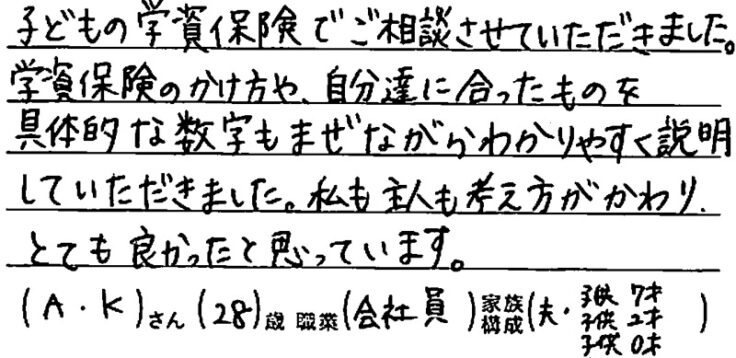 子どもの学資保険でご相談させていただきました。
学資保険のかけ方や、自分達に合ったものを
具体的な数字もまぜながらわかりやすく説明
していただきました。私も主人も考え方がかわり、
とても良かったと思っています。
(A・K)さん (28)歳 職業(会社員)家族構成(夫・子供 7才
子供 2才
子供 0才)